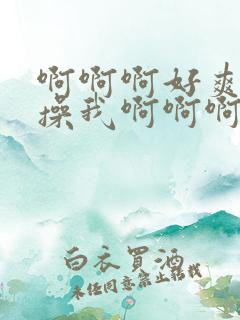 啊啊啊好爽
操我啊啊啊
白衣買酒
未经同意禁止转载